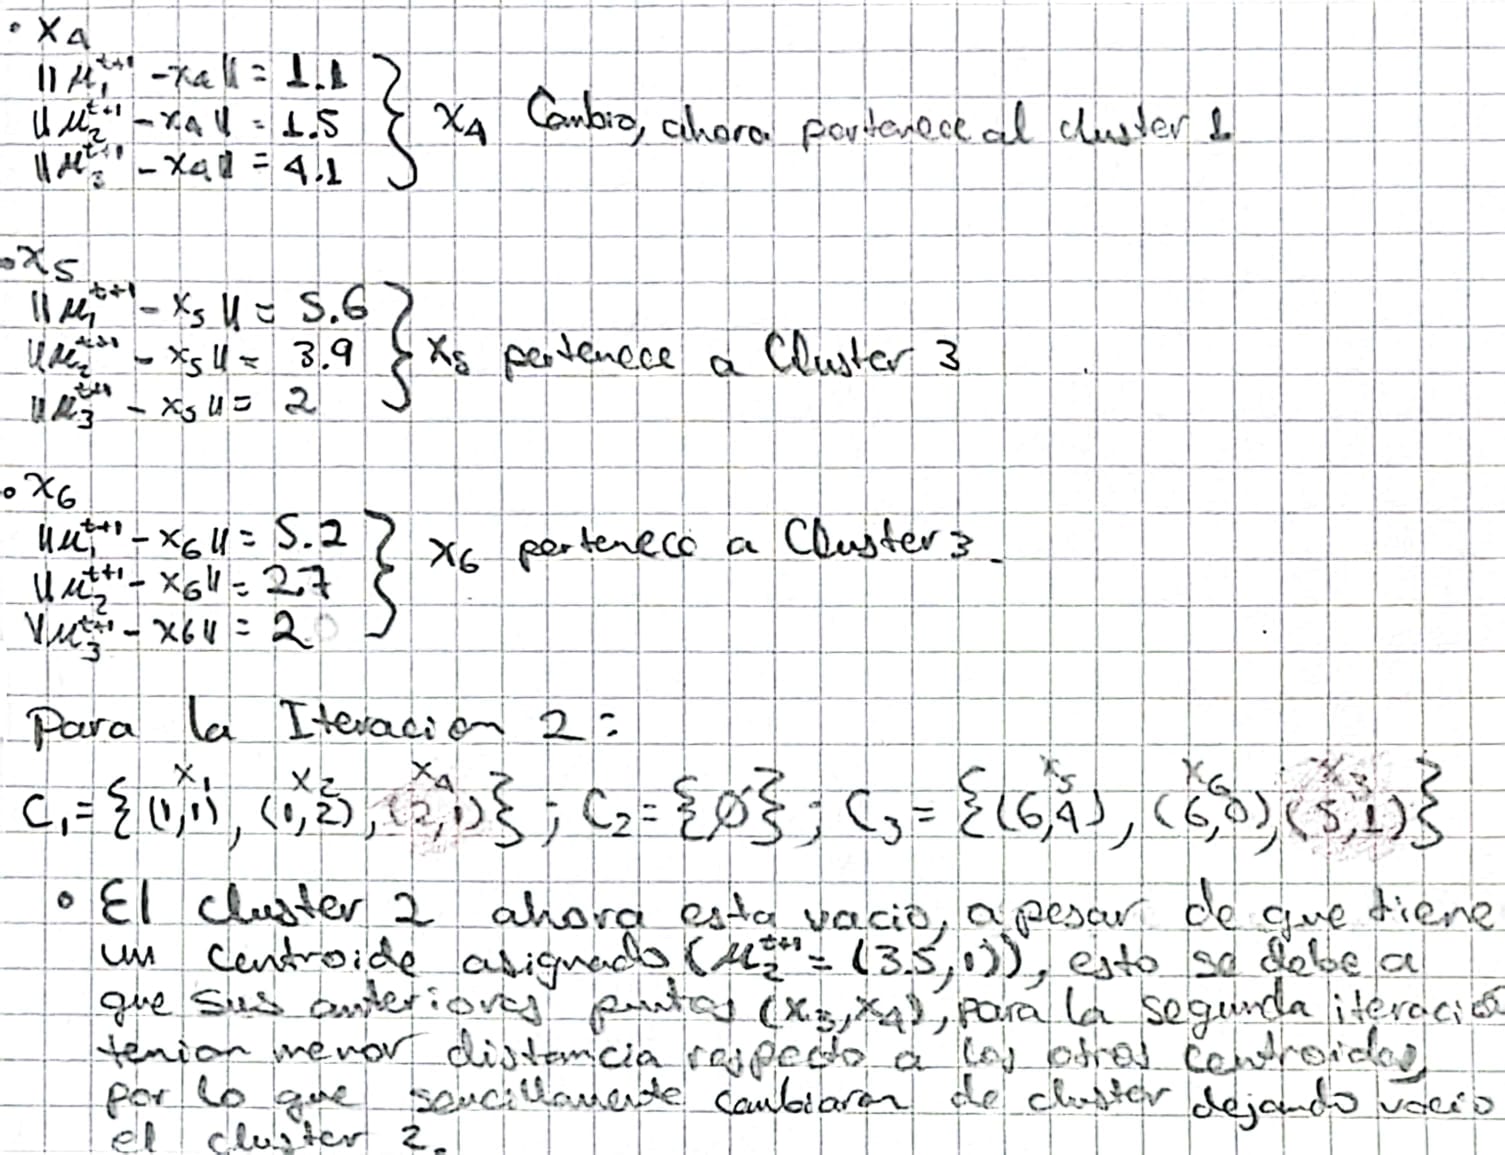 • x4
||μ₁^{t+1} - x4|| = 1.1
||μ₂^{t+1} - x4|| = 1.5
||μ₃^{t+1} - x4|| = 4.1
x4 Cambio, ahora pertenece al cluster 1
• x5
||μ₁^{t+1} - x5|| = 5.6
||μ₂^{t+1} - x5|| = 3.9
||μ₃^{t+1} - x5|| = 2
x5 pertenece a Cluster 3
• x6
||μ₁^{t+1} - x6|| = 5.2
||μ₂^{t+1} - x6|| = 2.7
||μ₃^{t+1} - x6|| = 2
x6 pertenece a Cluster 3.
Para la Iteracion 2:
x1 x2 x4 x5 x6 x3
C₁ = {(1,1), (1,2), (2,1)}; C₂ = {∅}; C₃ = {(6,4), (6,0), (5,1)}
• El cluster 2 ahora esta vacio, a pesar de que tiene
un centroide asignado (μ₂^{t+1} = (3.5,1)), esto se debe a
que sus anteriores puntos (x3,x4), para la segunda iteració
tenian menor distancia respecto a los otros centroides,
por lo que sencillamente cambiaron de cluster dejando vacio
el cluster 2.